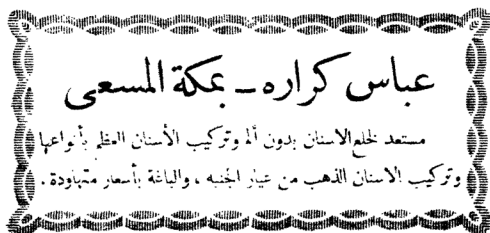 عباس كراره - بمكة المسعى
مستعد لخلع الاسنان بدون ألم وتركيب الأسنان العظم بأنواعها
وتركيب الاسنان الذهب من عيار الجنيه ، والباغة بأسعار متهاودة .